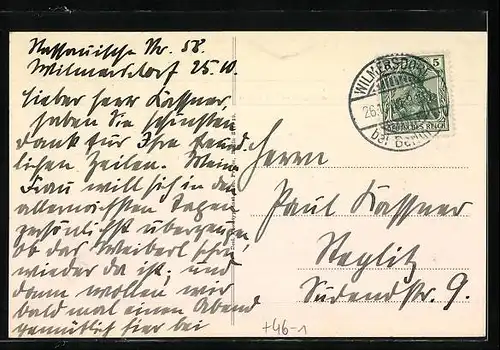 Nassauische Str. 58.
Wilmersdorf 25.10.
Lieber Herr Kassner,
haben Sie schönsten
Dank für Ihre freund-
lichen Zeilen. Meine
Frau will sich in den
allernächsten Tagen
persönlichst überzeugen,
ob das Weiberl schon
wieder da ist, und
dann wollen wir
bald mal einen Abend
gemütlich hier bei
Herrn
Paul Kassner
Steglitz
Südendstr. 9.
WILMERSDORF
26.10
bei Berlin
5
DEUTSCHES REICH
+46-1